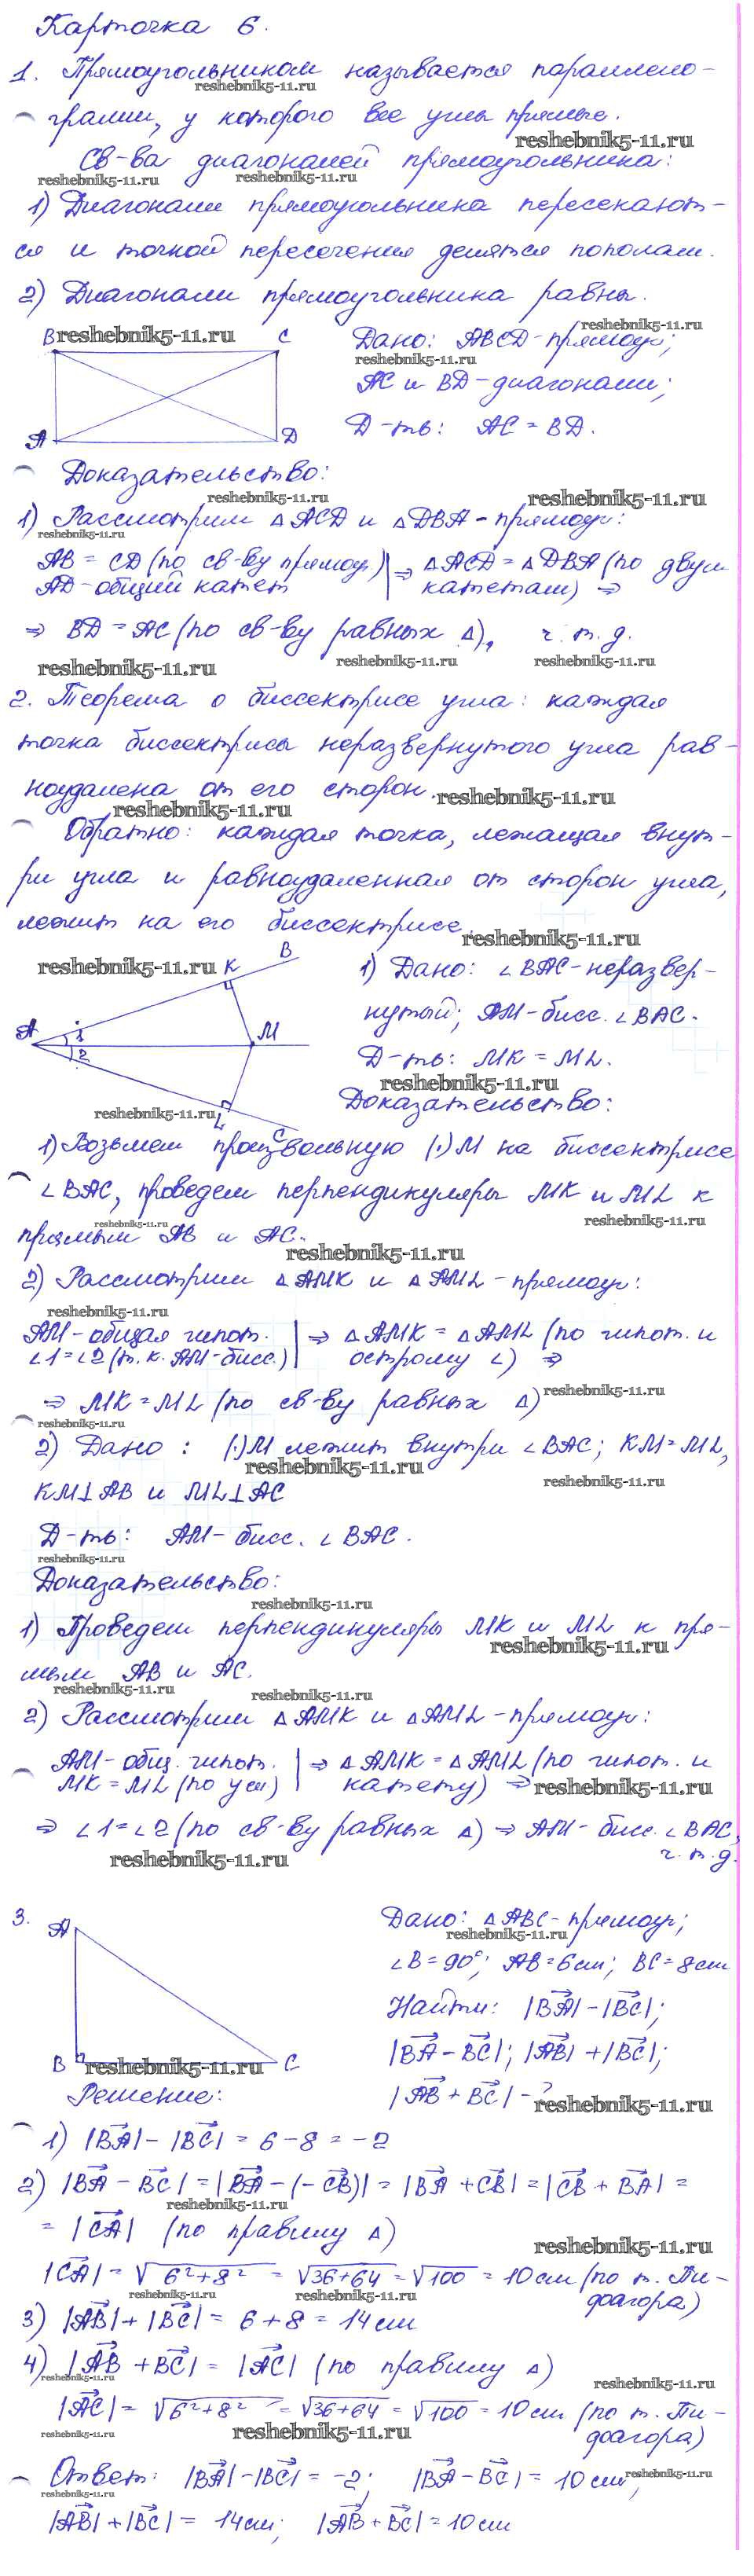 Карточка 6.
1. Прямоугольником называется параллело-
грамм, у которого все углы прямые.
Св-ва диагоналей прямоугольника:
1) Диагонали прямоугольника пересекают-
ся и точкой пересечения делятся пополам.
2) Диагонали прямоугольника равны.
B C
A D
Дано: ABCD - прямоуг;
AC и BD - диагонали;
Д-ть: AC = BD.
Доказательство:
1) Рассмотрим △ACD и △DBA - прямоуг:
AB = CD (по св-ву прямоуг) | ⇒ △ACD = △DBA (по двум
AD - общий катет | катетам) ⇒
⇒ BD = AC (по св-ву равных △), ч.т.д.
2. Теорема о биссектрисе угла: каждая
точка биссектрисы неразвернутого угла рав-
ноудалена от его сторон.
Обратно: каждая точка, лежащая внут-
ри угла и равноудаленная от сторон угла,
лежит на его биссектрисе.
K B
A 1 2 M
L C
1) Дано: ∠BAC - неразвер-
нутый; AM - бисс. ∠BAC.
Д-ть: MK = ML.
Доказательство:
1) Возьмем произвольную (·) M на биссектрисе
∠BAC, проведем перпендикуляры MK и ML к
прямым AB и AC.
2) Рассмотрим △AMK и △AML - прямоуг:
AM - общая гипот. | ⇒ △AMK = △AML (по гипот. и
∠1 = ∠2 (т.к. AM - бисс.) | острому ∠) ⇒
⇒ MK = ML (по св-ву равных △)
2) Дано: (·) M лежит внутри ∠BAC; KM = ML,
KM ⊥ AB и ML ⊥ AC
Д-ть: AM - бисс. ∠BAC.
Доказательство:
1) Проведем перпендикуляры MK и ML к пря-
мым AB и AC.
2) Рассмотрим △AMK и △AML - прямоуг:
AM - общ. гипот. | ⇒ △AMK = △AML (по гипот. и
MK = ML (по усл) | катету) ⇒
⇒ ∠1 = ∠2 (по св-ву равных △) ⇒ AM - бисс. ∠BAC,
ч.т.д.
3.
A
B C
Дано: △ABC - прямоуг;
∠B = 90°; AB = 6 см; BC = 8 см
Найти: |BA| - |BC|;
|BA - BC|; |AB| + |BC|;
|AB + BC| - ?
Решение:
1) |BA| - |BC| = 6 - 8 = -2
2) |BA - BC| = |BA - (-CB)| = |BA + CB| = |CB + BA| =
= |CA| (по правилу △)
|CA| = √6²+8² = √36+64 = √100 = 10 см (по т. Пи-
фагора)
3) |AB| + |BC| = 6 + 8 = 14 см
4) |AB + BC| = |AC| (по правилу △)
|AC| = √6²+8² = √36+64 = √100 = 10 см (по т. Пи-
фагора)
Ответ: |BA| - |BC| = -2; |BA - BC| = 10 см;
|AB| + |BC| = 14 см; |AB + BC| = 10 см
reshebnik5-11.ru